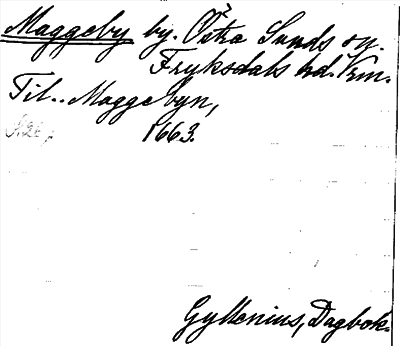 Maggeby by. Östra Sunds sn.
Fryksdals hd. Vrm.
Til.. Maggebyn,
1663.
Gyllenius, Dagbok.